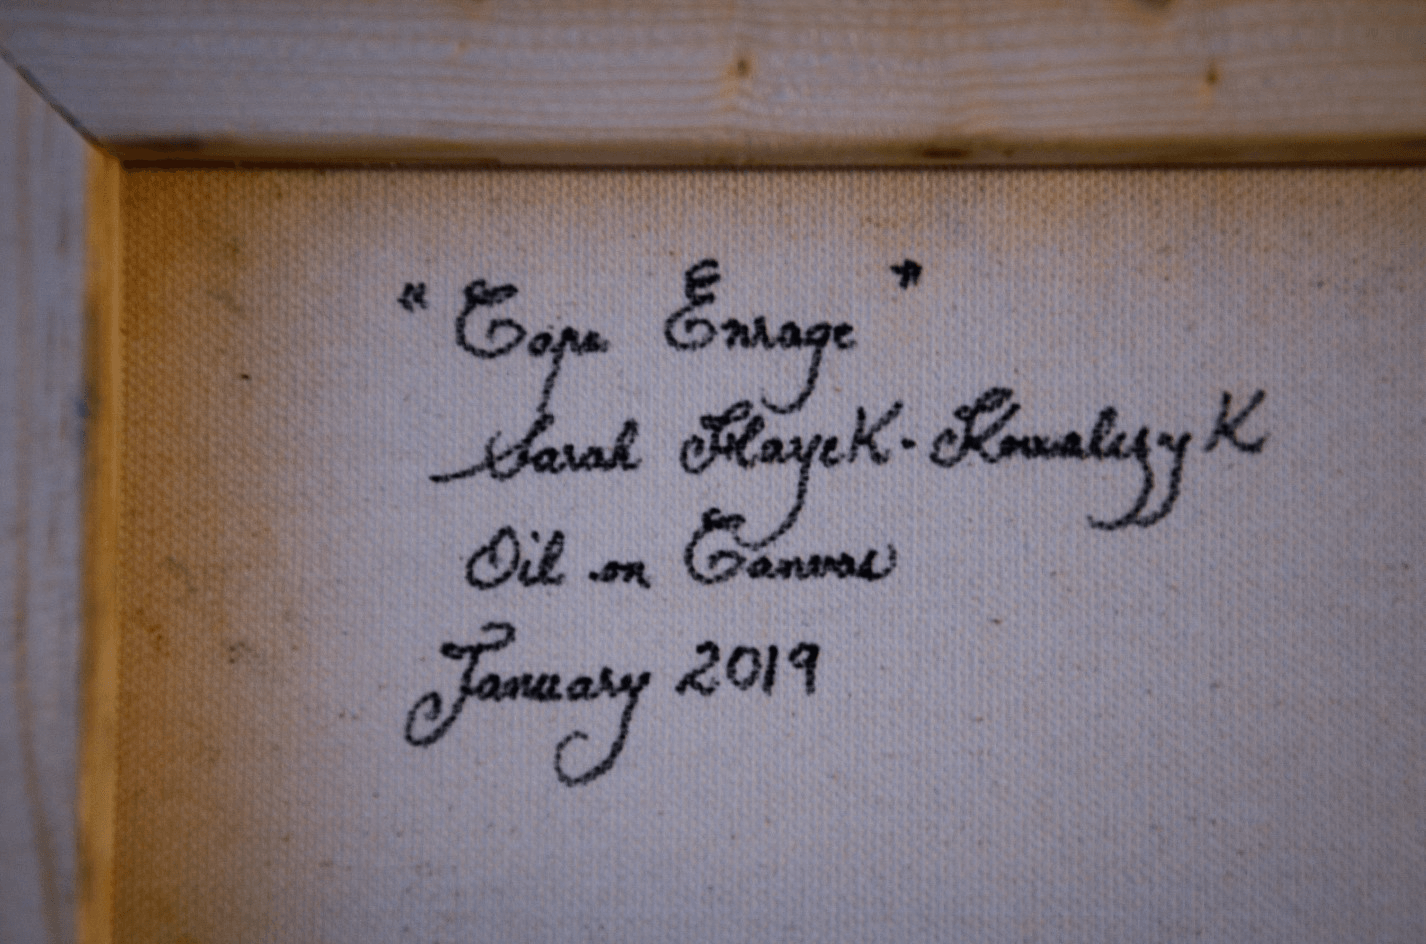 "Cape Enrage"
Sarah Hayek-Kowalczyk
Oil on Canvas
January 2019